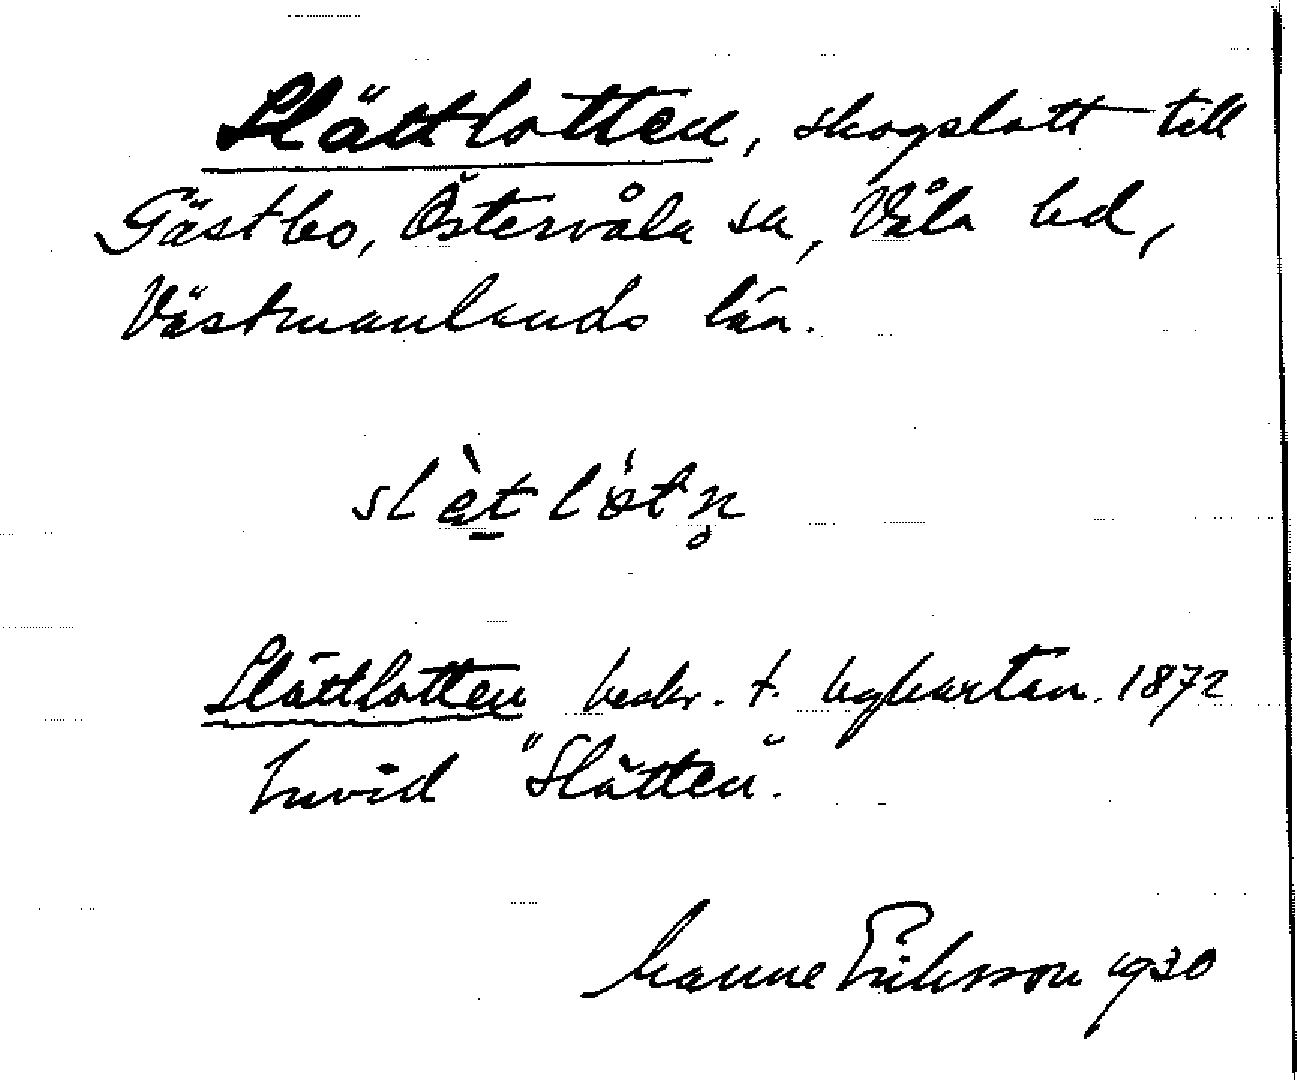 Slättlotten, skogslott till
Gästbo, Östervåla sn, Våla hd,
Västmanlands län.
slὰt lötn̥
Slättlotten beskr. t. lagakartan. 1872
invid "Slätten".
Manne Eriksson 1930